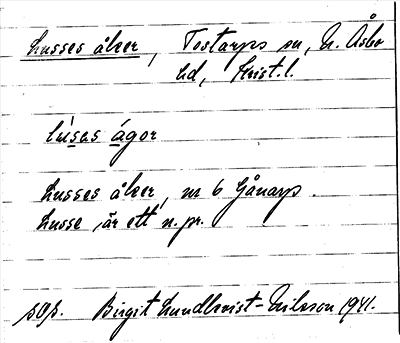 Lusses åker, Tostarps sn, N. Åsbo
hd, Krist. l.
lùsas ágor
Lusses åker, nr 6 Gånarp.
Lusse är ett n.pr.
sOp. Birgit Lundkvist-Eriksson 1941.